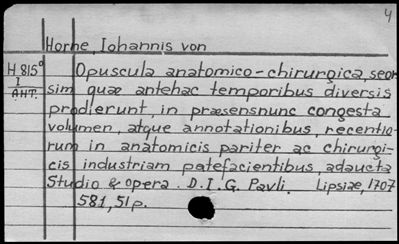 4
Horne, Iohannis von
H 815° Opuscula anatomico-chirurgica, seor
I sim quæ antehac temporibus diversis
AHT. prodierunt, in præsensnunc congesta
volumen, atque annotationibus, recentio-
rum in anatomicis pariter ac chirurgi-
cis industriam patefacientibus, adaucta
Studio & opera . D. I. G. Pavli. Lipsiæ, 1707
581, 51 p.